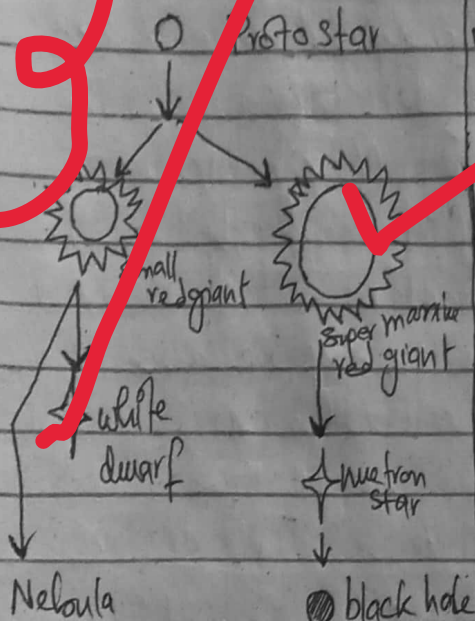 Proto star
small
red giant
super massive
red giant
white
dwarf
nuetron
star
Nebula
black hole